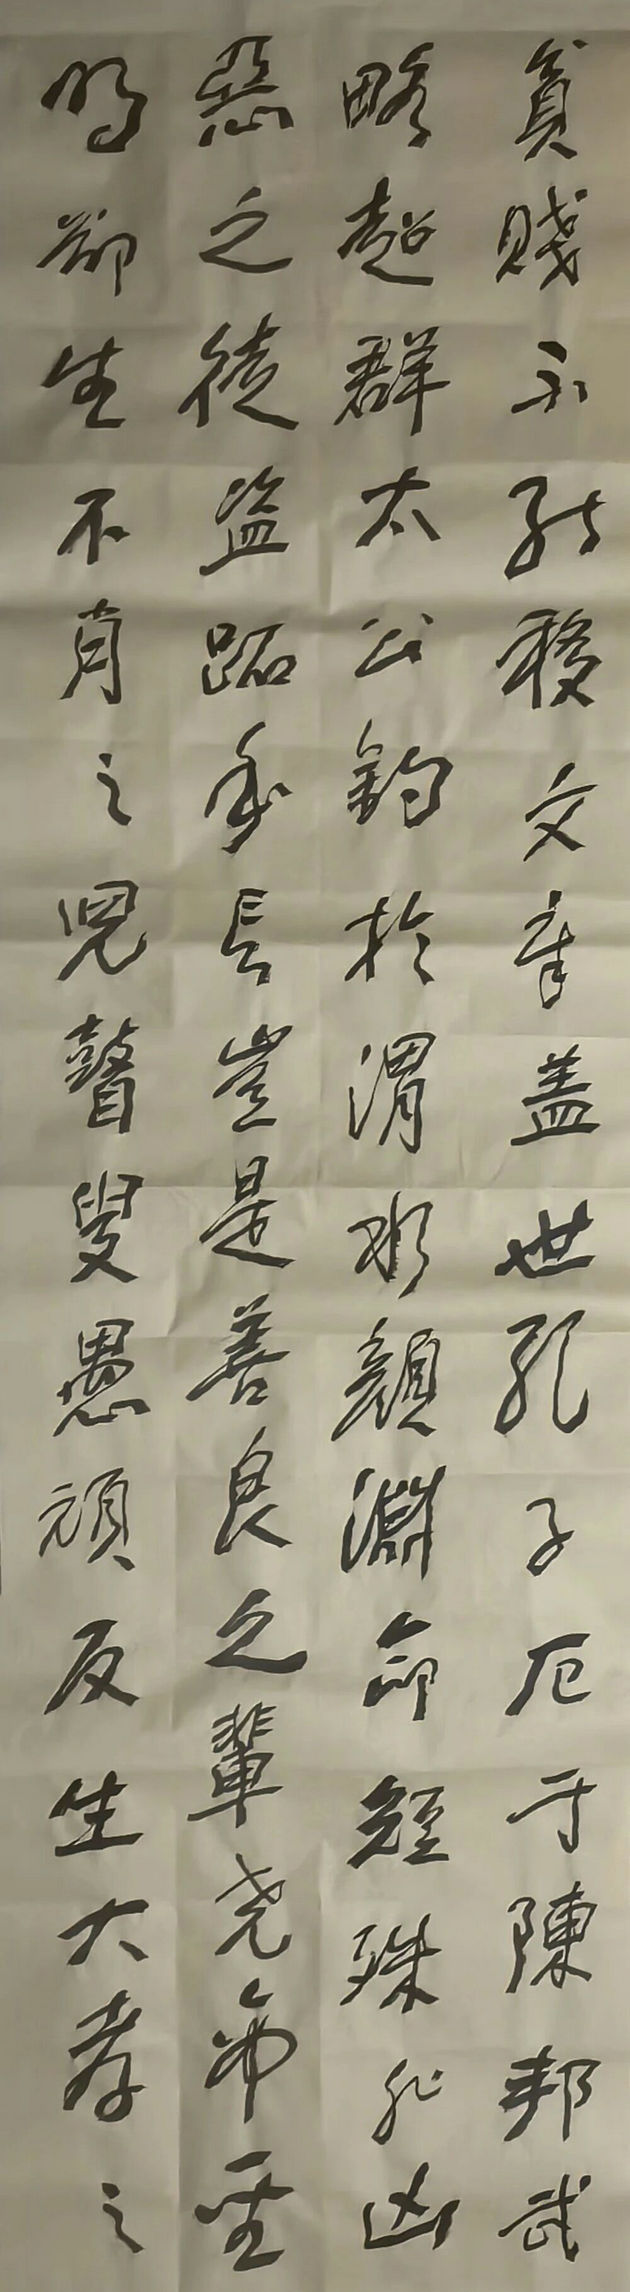 貧賤不能移文章盖世孔子厄于陳邦武
略超群太公釣於渭水顔淵命短殊非凶
惡之徒盗跖年長豈是善良之輩尧帝聖
明却生不肖之兒瞽叟愚頑反生大孝之